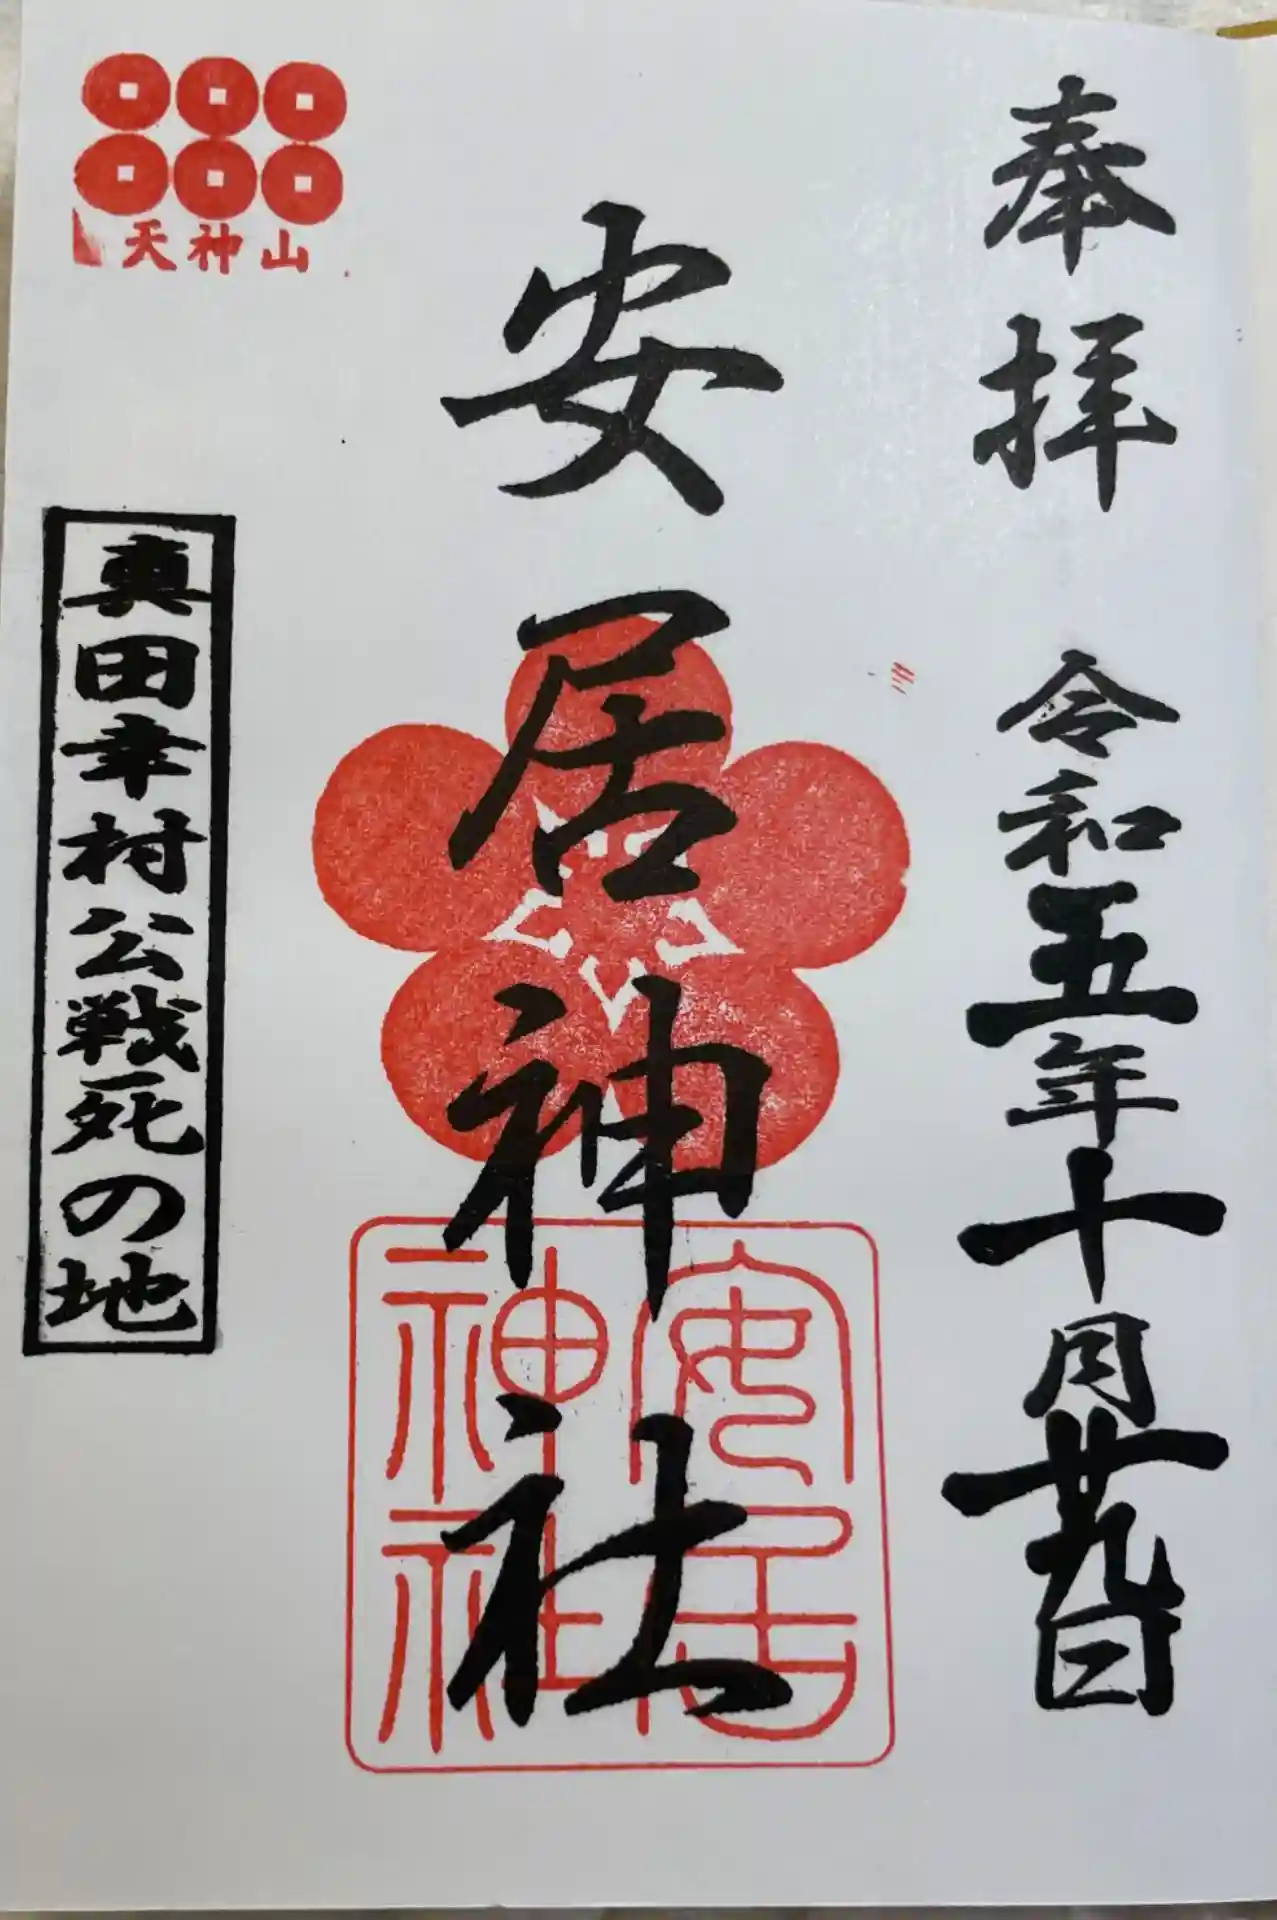 奉拝 令和五年十月廿九日
安居神社
安居
神社
天神山
真田幸村公戦死の地